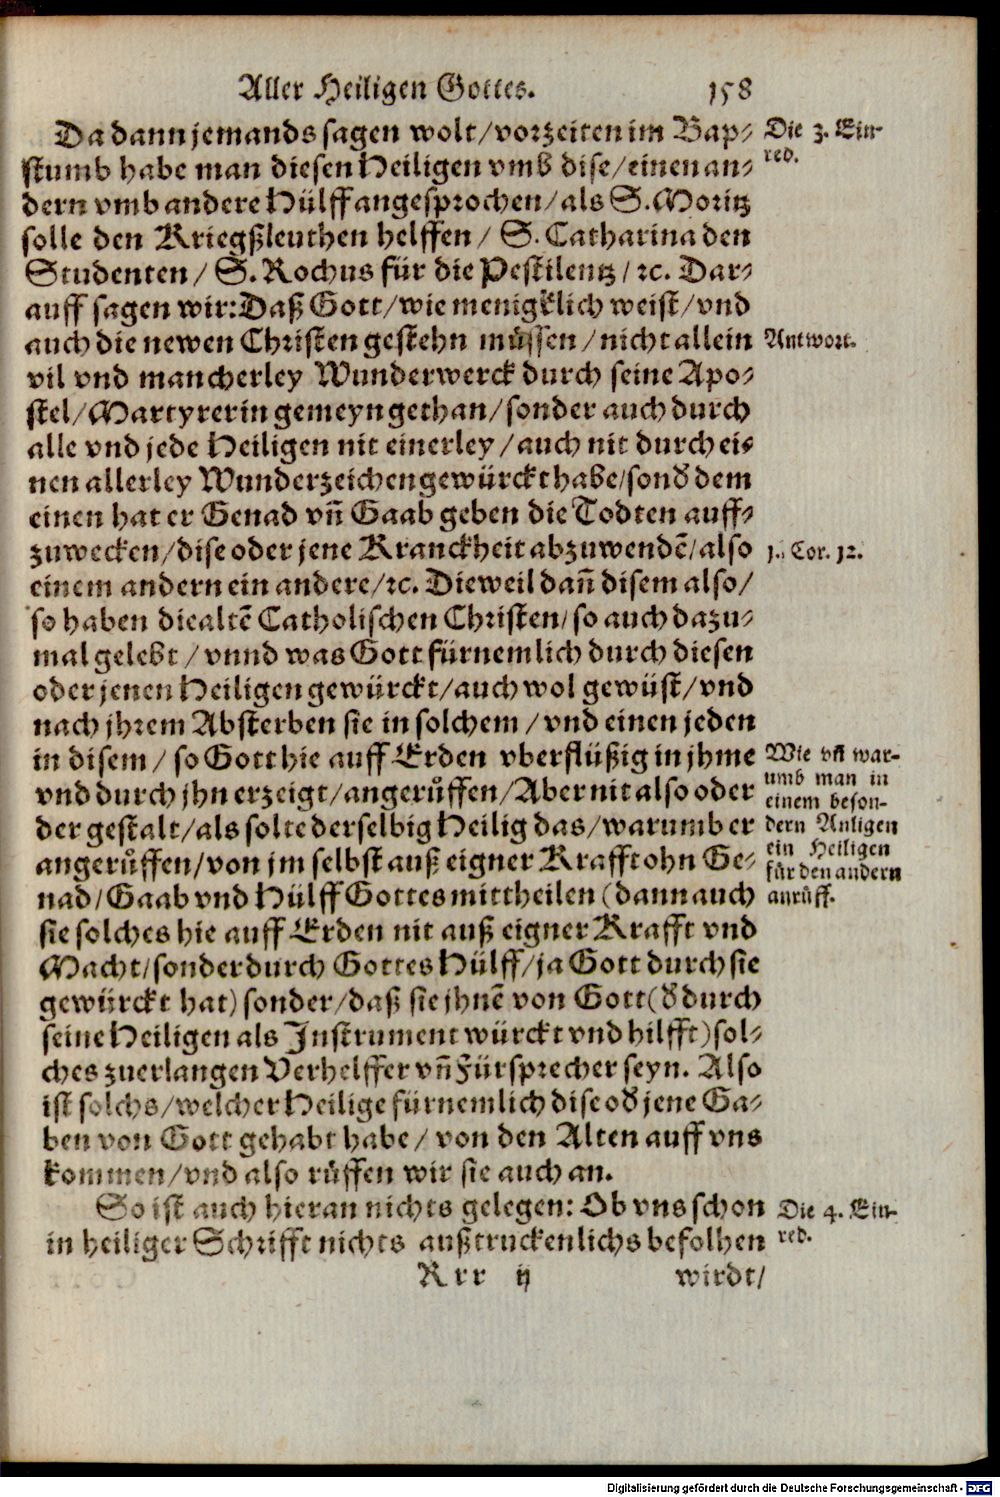 Aller Heiligen Gottes. 158
Da dann jemands sagen wolt/vorzeiten im Bap-
stumb habe man diesen Heiligen vmb dise/einen an-
dern vmb andere Hülff angesprochen/als S. Moritz
solle den Kriegßleuthen helffen/ S. Catharina den
Studenten/ S. Rochus für die Pestilentz/ ꝛc. Dar-
auff sagen wir: Daß Gott/wie menigklich weist/vnd
auch die newen Christen gestehn můssen/nicht allein
vil vnd mancherley Wunderwerck durch seine Apo-
stel/Martyrer in gemeyn gethan/sonder auch durch
alle vnd jede Heiligen nit einerley/auch nit durch ei-
nen allerley Wunderzeichen gewürckt habe/sonď dem
einen hat er Genad vñ Gaab geben die Todten auff-
zuwecken/dise oder jene Kranckheit abzuwendē/also
einem andern ein andere/ꝛc. Dieweil dañ disem also/
so haben die altē Catholischen Christen/so auch dazu-
mal gelebt/vnnd was Gott fürnemlich durch diesen
oder jenen Heiligen gewürckt/auch wol gewüst/vnd
nach jhrem Absterben sie in solchem/vnd einen jeden
in disem/so Gott hie auff Erden vberflüßig in jhme
vnd durch jhn erzeigt/angerůffen/Aber nit also oder
der gestalt/als solte derselbig Heilig das/warumb er
angerůffen/von jm selbst auß eigner Krafft ohn Ge-
nad/Gaab vnd Hülff Gottes mittheilen (dann auch
sie solches hie auff Erden nit auß eigner Krafft vnd
Macht/sonder durch Gottes Hülff/ja Gott durch sie
gewürckt hat) sonder/daß sie jhnē von Gott (ď durch
seine Heiligen als Instrument würckt vnd hilfft) sol-
ches zuerlangen Verhelffer vñ Fürsprecher seyn. Also
ist solchs/welcher Heilige fürnemlich dise oď jene Ga-
ben von Gott gehabt habe/von den Alten auff vns
kommen/vnd also růffen wir sie auch an.
So ist auch hieran nichts gelegen: Ob vns schon
in heiliger Schrifft nichts außtruckenlichs befolhen
Rrr ij wirdt/
Die 3. Ein-
red.
Antwort.
1. Cor. 12.
Wie vñ war-
umb man in
einem beson-
dern Anligen
ein Heiligen
für den andern
anrůff.
Die 4. Ein-
red.
Digitalisierung gefördert durch die Deutsche Forschungsgemeinschaft - DFG